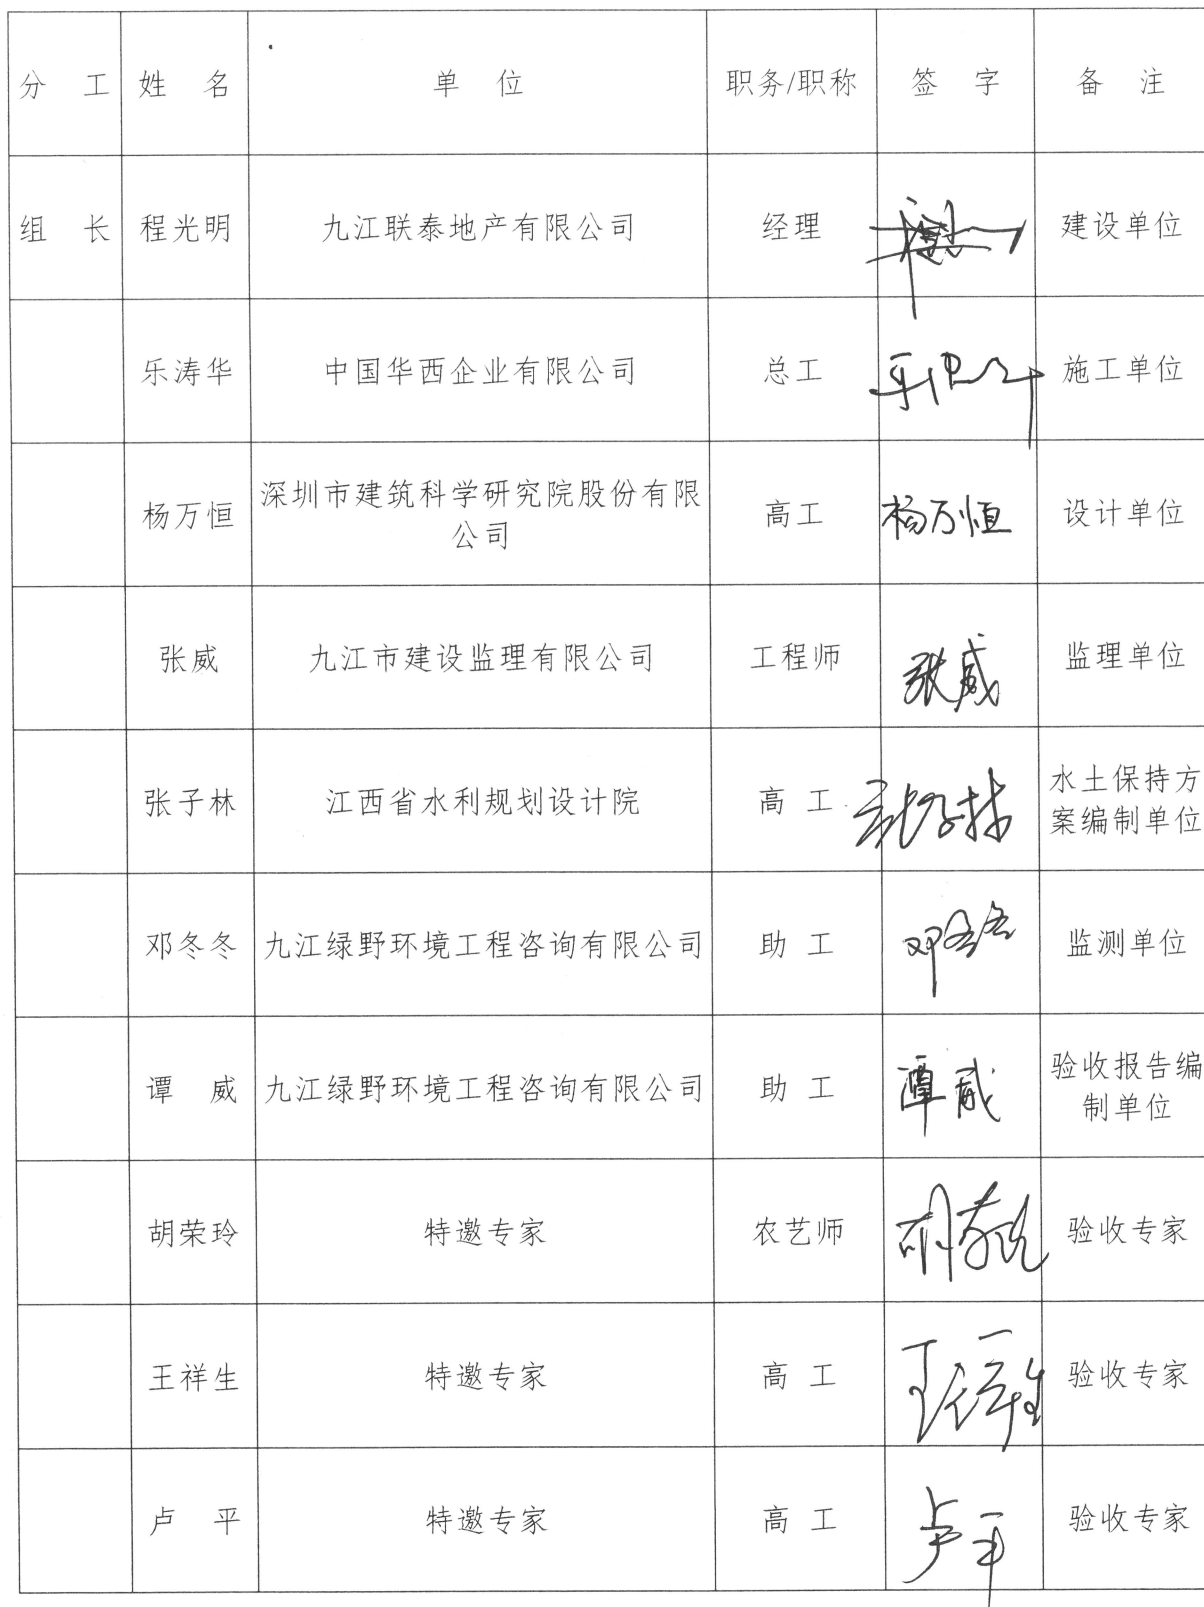 分 工 姓 名 单 位 职务/职称 签 字 备 注
组 长 程光明 九江联泰地产有限公司 经理 建设单位
乐涛华 中国华西企业有限公司 总工 施工单位
杨万恒 深圳市建筑科学研究院股份有限
公司 高工 杨万恒 设计单位
张威 九江市建设监理有限公司 工程师 张威 监理单位
张子林 江西省水利规划设计院 高 工 张子林 水土保持方
案编制单位
邓冬冬 九江绿野环境工程咨询有限公司 助 工 邓冬冬 监测单位
谭 威 九江绿野环境工程咨询有限公司 助 工 谭威 验收报告编
制单位
胡荣玲 特邀专家 农艺师 胡荣玲 验收专家
王祥生 特邀专家 高 工 王祥生 验收专家
卢 平 特邀专家 高 工 卢平 验收专家